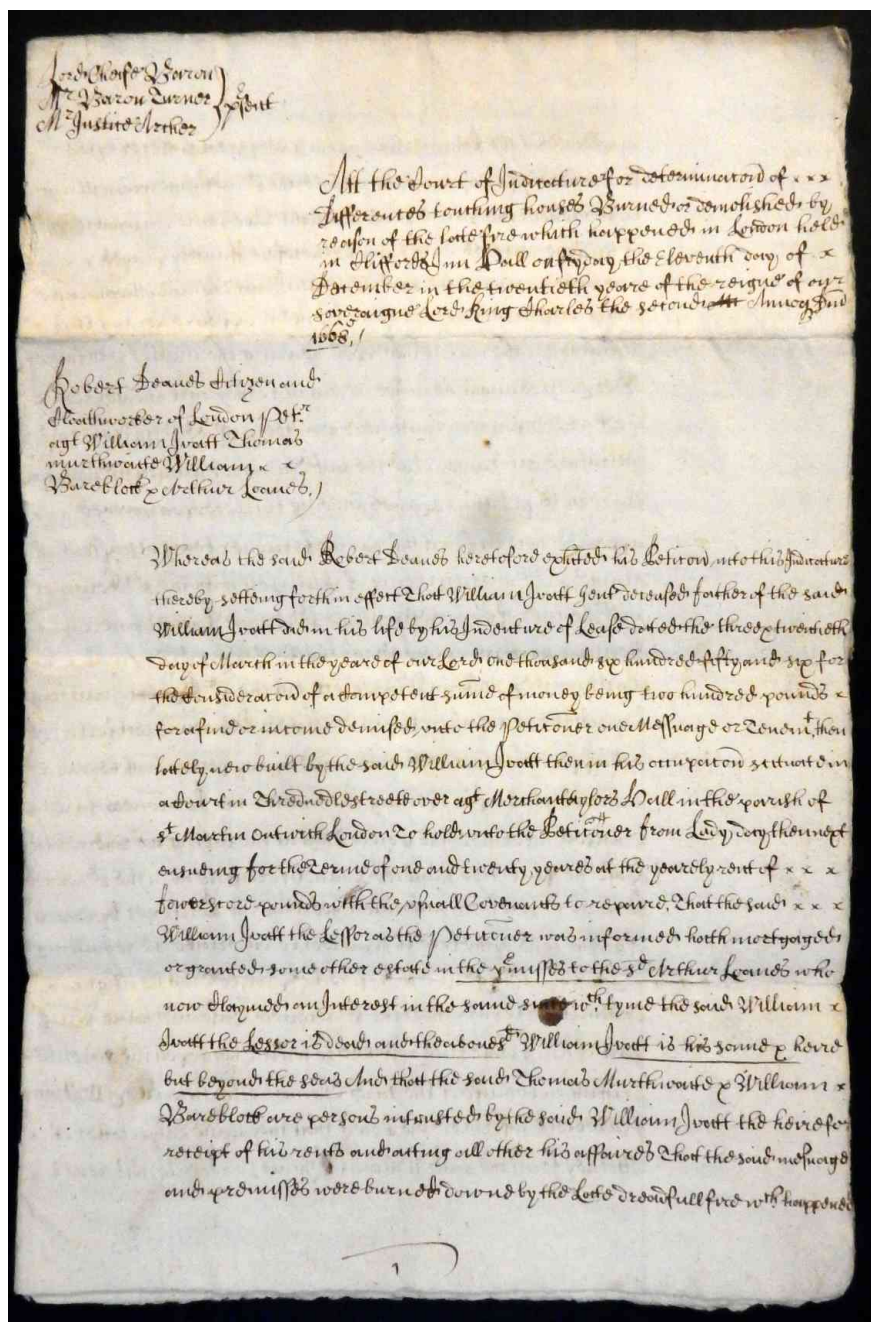 Lord Cheife Baron
Mr Baron Turner
Mr Justice Archer
p'sent
Att the Court of Judicature for determinacon of x x x
differences touching houses Burned or demolished by
reason of the late fire which happened in London held
in Cliffords Inn Hall on fryday the Eleventh day of x
December in the twentieth yeare of the reigne of our
soveraigne Lord King Charles the second Annoq Dni
1668
Robert Deanes Citizen and
Cloathworker of London Petr
agt William Jvatt Thomas
murthwaite William x x
Bareblock & Arthur Loanes
Whereas the said Robert Deanes heretofore exhited his Peticon into this Judicature
thereby setteing forth in effect That William Jvatt Gent deceased father of the said
William Jvatt did in his life by his Indenture of Lease dated the three & twentieth
day of March in the yeare of our Lord one thousand six hundred fifty and six for
the Consideracon of a Competent sume of money being two hundred pounds x
for a fine or income demised unto the Peticoner one Messuage or Tenemt then
lately new built by the said William Jvatt then in his occupacon scituate in
a Court in Thredneedlestreete over agt Merchantaylors Hall in the parish of
st Martin Outwich London To hold unto the Peticoner from Lady day then next
ensueing for the Terme of one and twenty yeares at the yearely rent of x x x
fowerscore pounds with the usuall Covenants to repaire, That the said x x x
William Jvatt the Lessor as the Peticoner was informed hath mortgaged
or granted some other estate in the p'misses to the sd Arthur Loanes who
now claymed an Interest in the same since wch tyme the said William x
Jvatt the Lessor is dead and the abovesd William Jvatt is his sonne & heire
but beyond the seas And that the said Thomas Murthwaite & William x
Bareblock are persons intrusted by the said William Jvatt the heire for
receipt of his rents and acting all other his affaires That the said messuage
and premisses were burned downe by the Late dreadfull fire wch happened
1